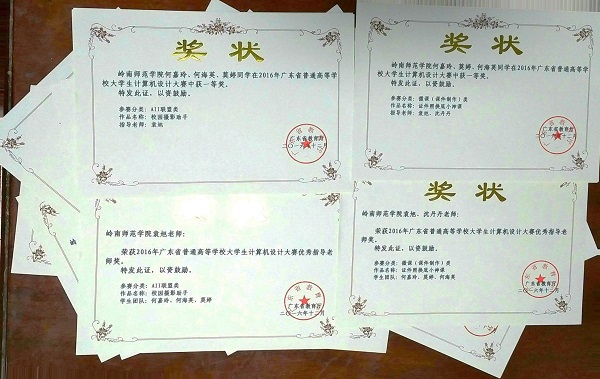 奖状
岭南师范学院何嘉玲、何海英、莫婷同学在2016年广东省普通高等学
校大学生计算机设计大赛中获一等奖。
特发此证，以资鼓励。
参赛分类：All联盟类
作品名称：校园摄影助手
指导老师：袁旭
广东省教育厅
二〇一六年十二月
奖状
岭南师范学院何嘉玲、何海英、莫婷同学在2016年广东省普通高等学
校大学生计算机设计大赛中获一等奖。
特发此证，以资鼓励。
参赛分类：微课（课件制作）类
作品名称：证件照换底小神课
指导老师：袁旭、沈丹丹
广东省教育厅
二〇一六年十二月
岭南师范学院袁旭老师：
荣获2016年广东省普通高等学校大学生计算机设计大赛优秀指导老
师奖。
特发此证，以资鼓励。
参赛分类：All联盟类
作品名称：校园摄影助手
学生团队：何嘉玲、何海英、莫婷
广东省教育厅
二〇一六年十二月
奖状
岭南师范学院袁旭、沈丹丹老师：
荣获2016年广东省普通高等学校大学生计算机设计大赛优秀指导老
师奖。
特发此证，以资鼓励。
参赛分类：微课（课件制作）类
作品名称：证件照换底小神课
学生团队：何嘉玲、莫婷、何海英
广东省教育厅
二〇一六年十二月